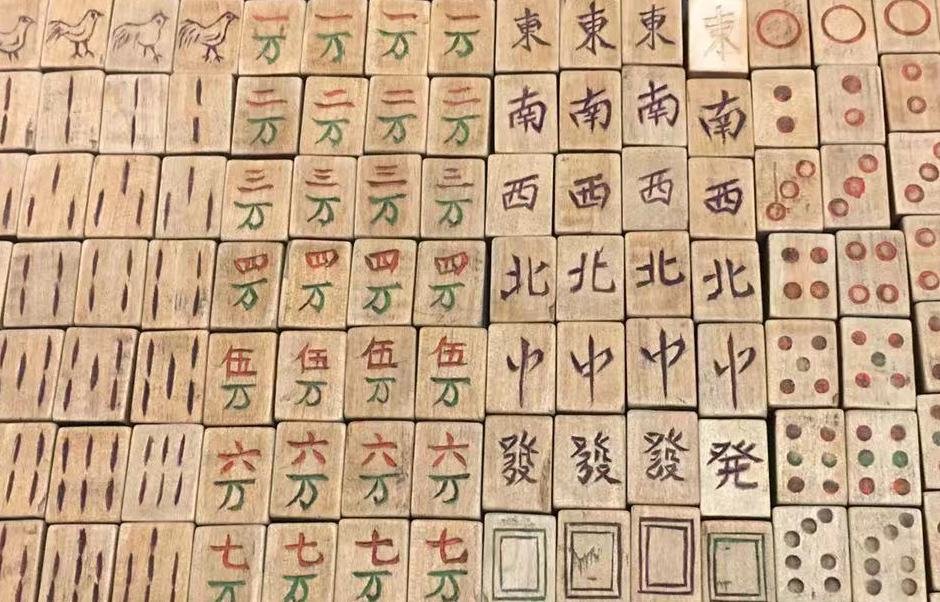 一万 一万 一万 一万 東 東 東 東
二万 二万 二万 二万 南 南 南 南
三万 三万 三万 三万 西 西 西 西
四万 四万 四万 四万 北 北 北 北
伍万 伍万 伍万 伍万 中 中 中 中
六万 六万 六万 六万 發 發 發 発
七万 七万 七万 七万